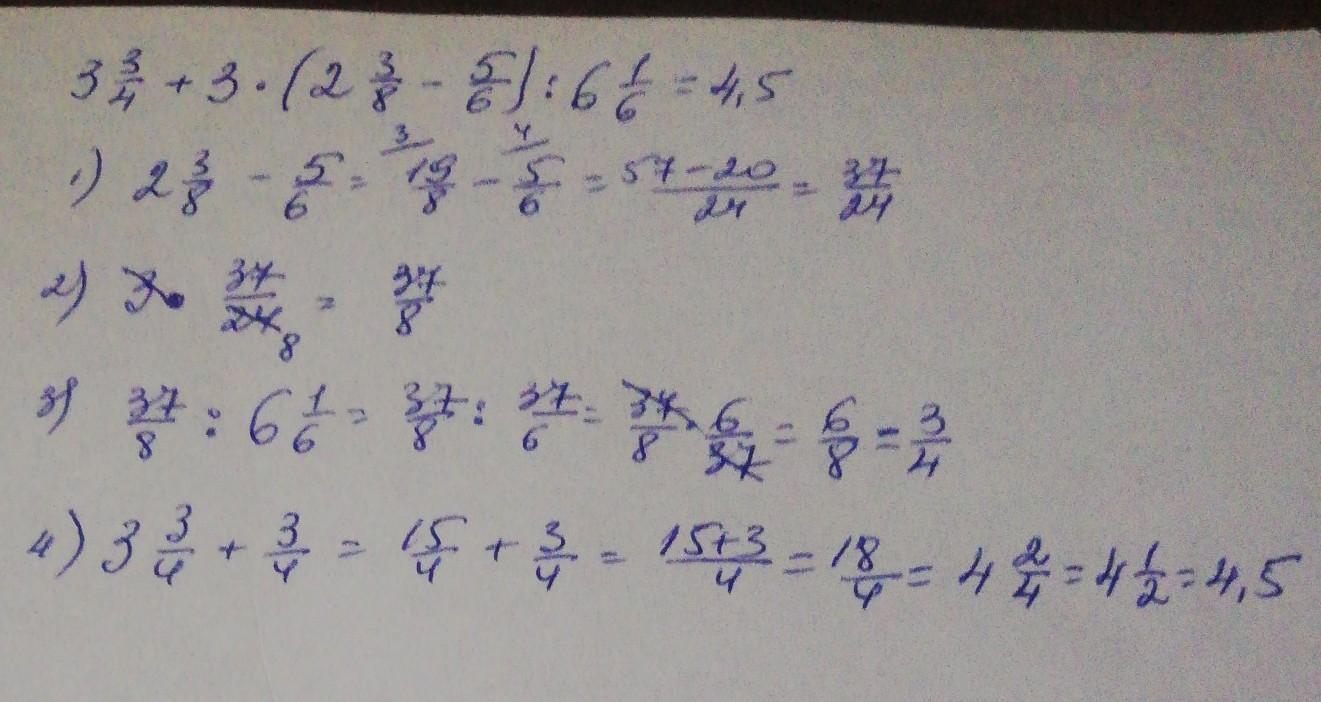 3 3/4 + 3 · (2 3/8 - 5/6) : 6 1/6 = 4,5
1) 2 3/8 - 5/6 = 3/ 19/8 - 4/ 5/6 = 57-20/24 = 37/24
2) 3 · 37/24 8 = 37/8
3) 37/8 : 6 1/6 = 37/8 : 37/6 = 37/8 · 6/37 = 6/8 = 3/4
4) 3 3/4 + 3/4 = 15/4 + 3/4 = 15+3/4 = 18/4 = 4 2/4 = 4 1/2 = 4,5